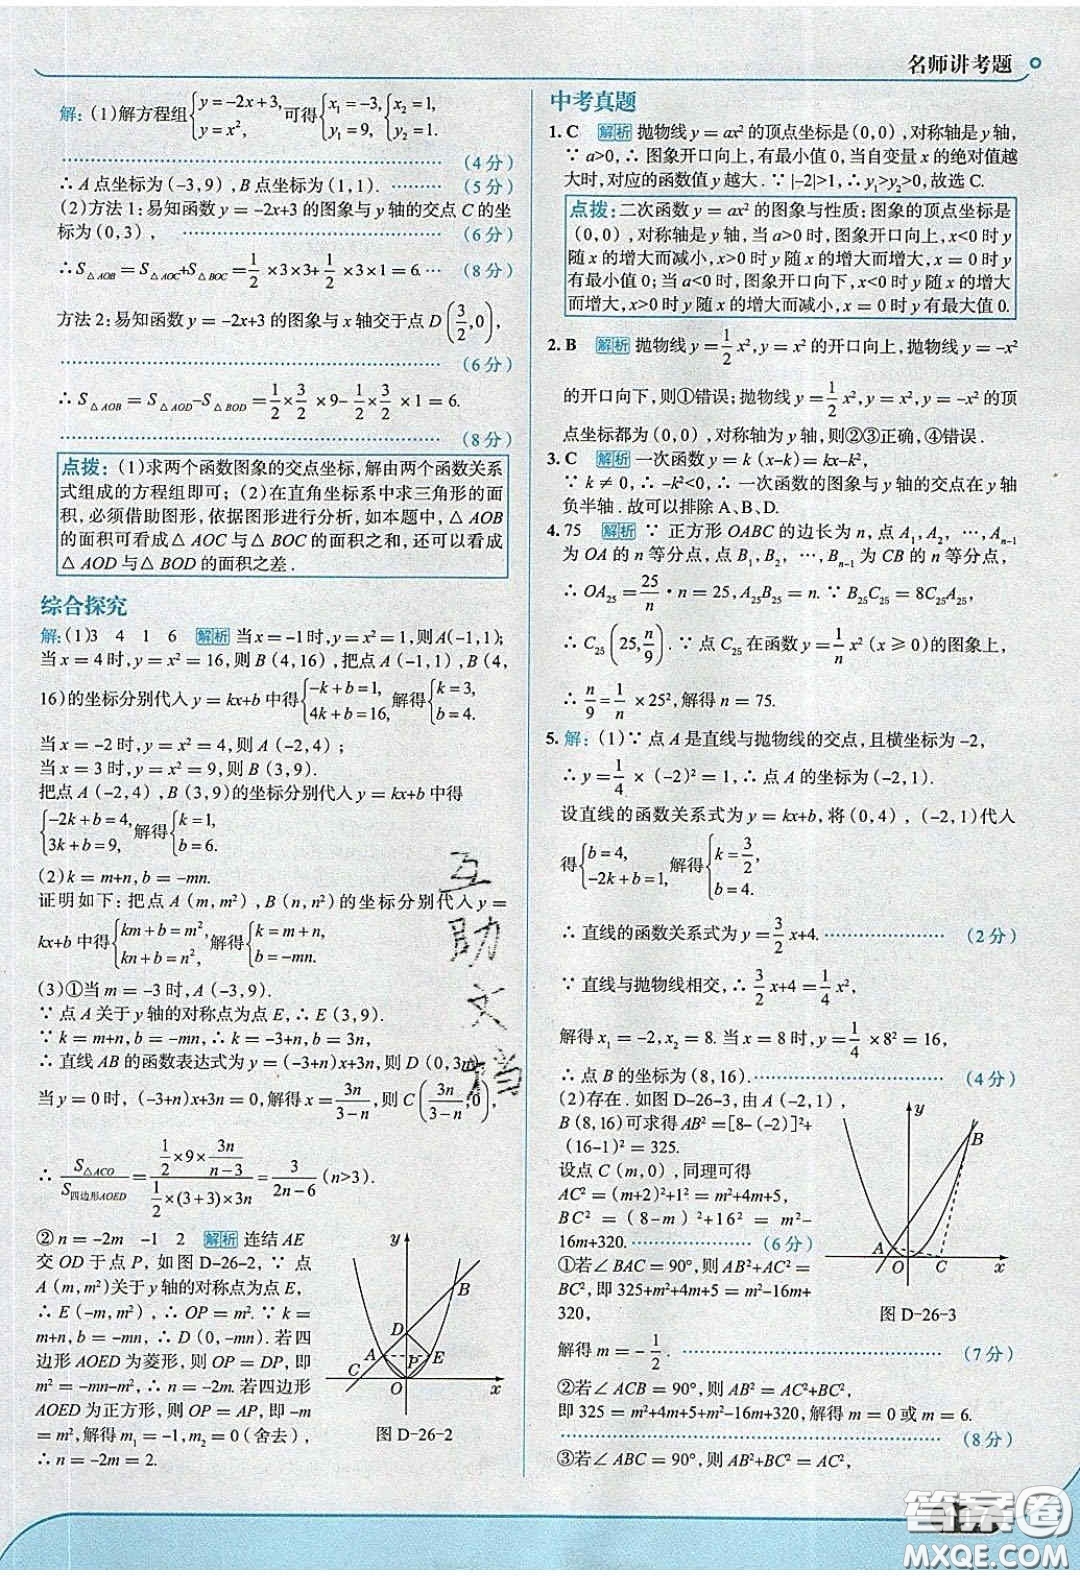 名师讲考题
解:(1)解方程组{y=-2x+3, y=x², 可得{x₁=-3, y₁=9, {x₂=1, y₂=1.
(4分)
∴A点坐标为(-3,9),B点坐标为(1,1).………(5分)
(2)方法1:易知函数y=-2x+3的图象与y轴的交点C的坐
标为(0,3),………(6分)
∴S△AOB=S△AOC+S△BOC=1/2×3×3+1/2×3×1=6.…(8分)
方法2:易知函数y=-2x+3的图象与x轴交于点D(3/2,0),
………(6分)
∴S△AOB=S△AOD-S△BOD=1/2×3/2×9-1/2×3/2×1=6.
………(8分)
点拨:(1)求两个函数图象的交点坐标,解由两个函数关系
式组成的方程组即可;(2)在直角坐标系中求三角形的面
积,必须借助图形,依据图形进行分析,如本题中,△AOB
的面积可看成△AOC与△BOC的面积之和,还可以看成
△AOD与△BOD的面积之差.
综合探究
解:(1)3 4 1 6 解析 当x=-1时,y=x²=1,则A(-1,1);
当x=4时,y=x²=16,则B(4,16),把点A(-1,1),B(4,
16)的坐标分别代入y=kx+b中得{-k+b=1, 4k+b=16, 解得{k=3, b=4.
当x=-2时,y=x²=4,则A(-2,4);
当x=3时,y=x²=9,则B(3,9).
把点A(-2,4),B(3,9)的坐标分别代入y=kx+b中得
{-2k+b=4, 3k+b=9, 解得{k=1, b=6.
(2)k=m+n,b=-mn.
证明如下:把点A(m,m²),B(n,n²)的坐标分别代入y=
kx+b中得{km+b=m², kn+b=n², 解得{k=m+n, b=-mn.
(3)①当m=-3时,A(-3,9).
∵点A关于y轴的对称点为点E,∴E(3,9).
∵k=m+n,b=-mn,∴k=-3+n,b=3n.
∴直线AB的函数表达式为y=(-3+n)x+3n,则D(0,3n).
当y=0时,(-3+n)x+3n=0,解得x=3n/(3-n),则C(3n/(3-n),0),
∴S△ACO/S四边形AOED=(1/2×9×3n/(n-3))/(1/2×(3+3)×3n)=3/(2n-6)(n>3).
②n=-2m -1 2 解析 连结AE
交OD于点P,如图D-26-2,∵点
A(m,m²)关于y轴的对称点为点E,
∴E(-m,m²),∴OP=m².∵k=
m+n,b=-mn,∴D(0,-mn).若四
边形AOED为菱形,则OP=DP,即
m²=-mn-m²,∴n=-2m.若四边形
AOED为正方形,则OP=AP,即-m
=m²,解得m₁=-1,m₂=0(舍去),
∴n=-2m=2.
y
B
D
A
P
E
C
O
x
图D-26-2
中考真题
1.C 解析 抛物线y=ax²的顶点坐标是(0,0),对称轴是y轴,
∵a>0,∴图象开口向上,有最小值0,当自变量x的绝对值越
大时,对应的函数值y越大.∵|-2|>1,∴y₁>y₂>0,故选C.
点拨:二次函数y=ax²的图象与性质:图象的顶点坐标是
(0,0),对称轴是y轴,当a>0时,图象开口向上,x<0时y
随x的增大而减小,x>0时y随x的增大而增大,x=0时y
有最小值0;当a<0时,图象开口向下,x<0时y随x的增大
而增大,x>0时y随x的增大而减小,x=0时y有最大值0.
2.B 解析 抛物线y=1/2x²,y=x²的开口向上,抛物线y=-x²
的开口向下,则①错误;抛物线y=1/2x²,y=x²,y=-x²的顶
点坐标都为(0,0),对称轴为y轴,则②③正确,④错误.
3.C 解析 一次函数y=k(x-k)=kx-k²,
∵k≠0,∴-k²<0,∴一次函数的图象与y轴的交点在y轴
负半轴.故可以排除A、B、D.
4.75 解析 ∵正方形OABC的边长为n,点A₁,A₂,…,Aₙ₋₁
为OA的n等分点,点B₁,B₂,…,Bₙ₋₁为CB的n等分点,
∴OA₂₅=25/n·n=25,A₂₅B₂₅=n.∵B₂₅C₂₅=8C₂₅A₂₅,
∴C₂₅(25,n/9).∵点C₂₅在函数y=1/n x²(x≥0)的图象上,
∴n/9=1/n×25²,解得n=75.
5.解:(1)∵点A是直线与抛物线的交点,且横坐标为-2,
∴y=1/4×(-2)²=1,∴点A的坐标为(-2,1).
设直线的函数关系式为y=kx+b,将(0,4),(-2,1)代入
得{b=4, -2k+b=1, 解得{k=3/2, b=4.
∴直线的函数关系式为y=3/2x+4.………(2分)
∵直线与抛物线相交,∴3/2x+4=1/4x²,
解得x₁=-2,x₂=8.当x=8时,y=1/4×8²=16,
∴点B的坐标为(8,16).………(4分)
(2)存在.如图D-26-3,由A(-2,1),
B(8,16)可求得AB²=[8-(-2)]²+
(16-1)²=325.
设点C(m,0),同理可得
AC²=(m+2)²+1²=m²+4m+5,
BC²=(8-m)²+16²=m²-
16m+320.………(6分)
①若∠BAC=90°,则AB²+AC²=
BC²,即325+m²+4m+5=m²-16m+
320,
解得m=-1/2.………(7分)
②若∠ACB=90°,则AB²=AC²+BC²,
即325=m²+4m+5+m²-16m+320,解得m=0或m=6.
………(8分)
③若∠ABC=90°,则AB²+BC²=AC²,
y
B
A
O
C
x
图D-26-3
互
助
文
档
答案圈
MXQE.COM